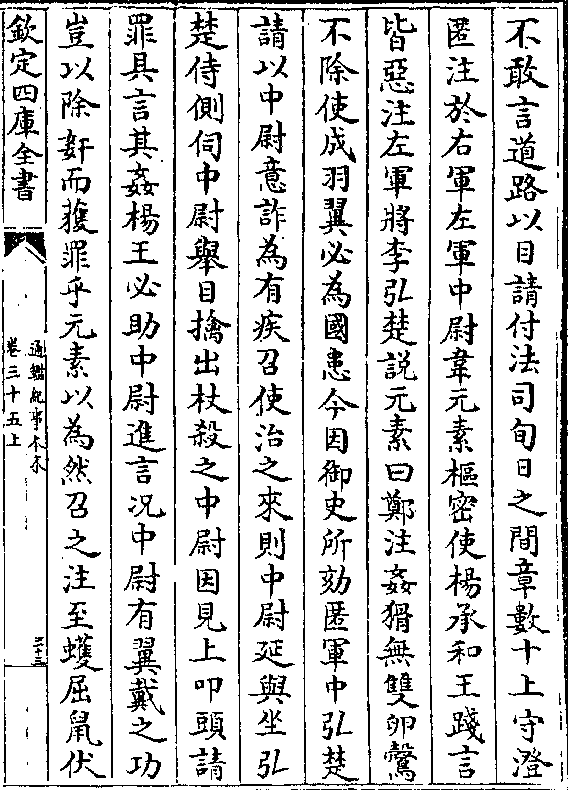 不敢言道路以目請付法司旬日之間章數十上守澄
匿注於右軍左軍中尉韋元素樞密使楊承和王踐言
皆惡注左軍將李弘楚說元素曰鄭注姦猾無雙卵鷇
不除使成羽翼必為國患今因御史所劾匿軍中弘楚
請以中尉意詐為有疾召使治之來則中尉延與坐弘
楚侍側伺中尉舉目擒出杖殺之中尉因見上叩頭請
罪具言其姦楊王必助中尉進言况中尉有翼戴之功
豈以除姧而獲罪乎元素以為然召之注至蠖屈鼠伏
欽定四庫全書
通鑑紀事本末
卷三十五上
三十三